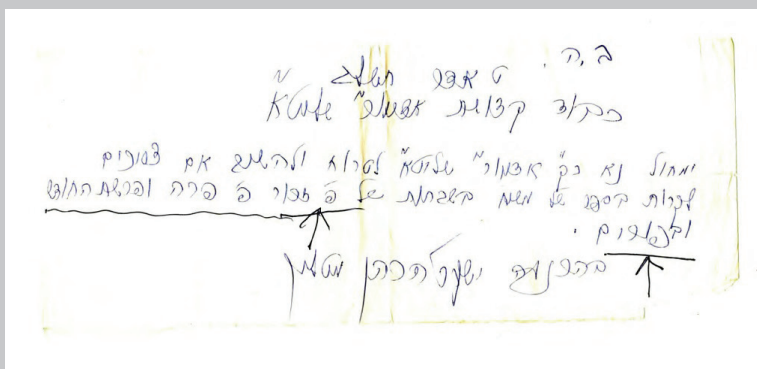 ב.ה.
ט אדר תשלג
כבוד קדושת אדמו"ר שליט"א
ימחול נא כ"ק אדמו"ר שליט"א לטרוח ולהשיב אם צריכים
לקרות בספר של משיח בשבתות של פ' זכור פ' פרה ופרשת החודש
ובפורים.
בהכנעה הכהן